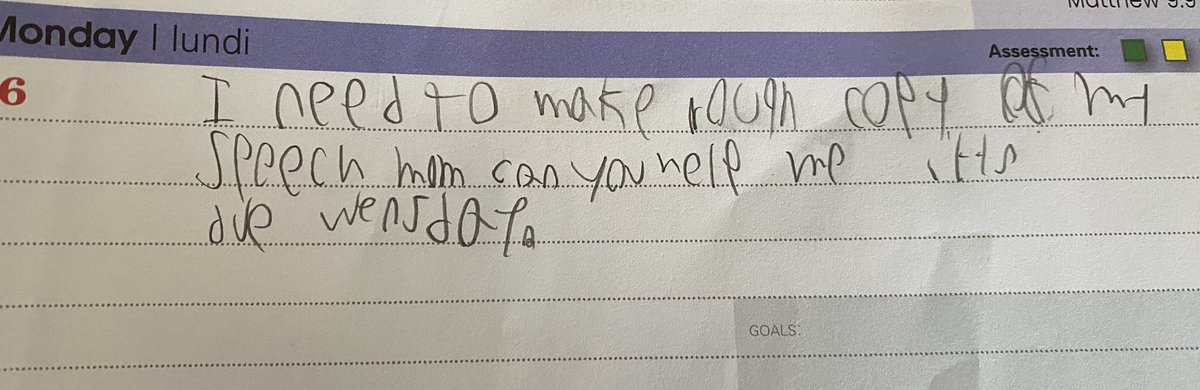 Matthew 9:9
Monday | lundi
Assessment:
6
I need to make rough copy of my
speech mom can you help me its
due wensday.
GOALS: